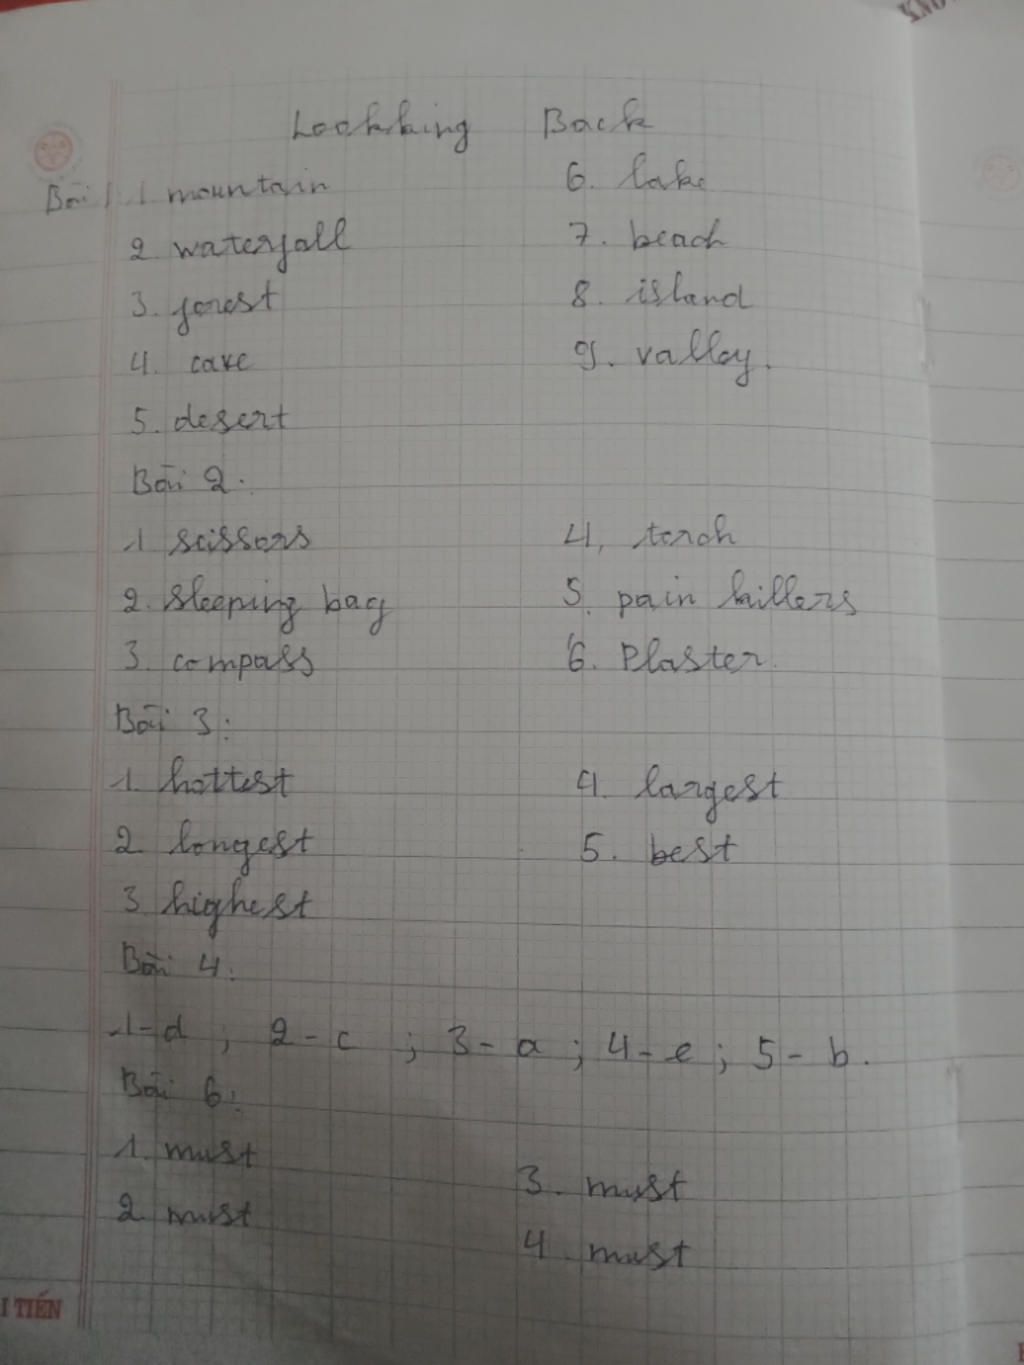 Lookking Back
Bài 1 1 mountain
6. lake
2. waterfall
7. beach
3. forest
8. island
4. cave
9. valley.
5. desert
Bài 2:
1 scissors
4, torch
2. Sleeping bag
5. pain killers
3. compass
6. Plaster.
Bài 3:
1. hottest
4. largest
2. longest
5. best
3. highest
Bài 4:
1-d ; 2-c ; 3-a ; 4-e ; 5-b.
Bài 6:
1. must
3. must
2 must
4. must
I TIẾN